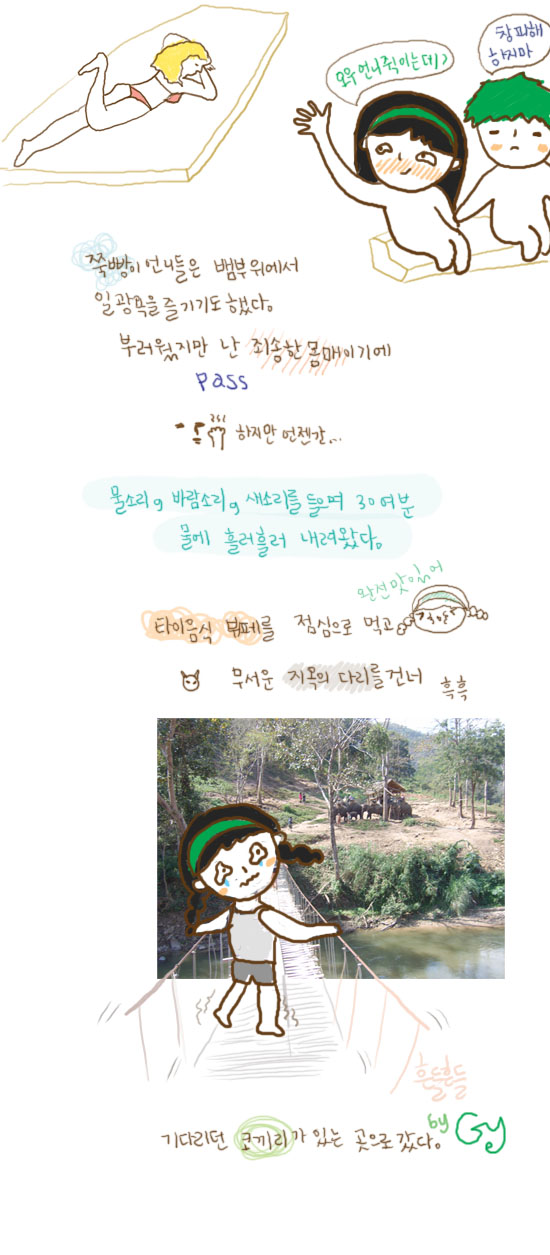 창피해
하지마
오우 언니 쥑이는데?
쭉빵이 언니들은 뱀부 위에서
일광욕을 즐기기도 했다.
부러웠지만 난 죄송한 몸매이기에
pass
하지만 언젠간...
물소리, 바람소리, 새소리를 들으며 30여분
물에 흘러흘러 내려왔다.
완전 맛있어
타이음식 부페를 점심으로 먹고
무서운 지옥의 다리를 건너 흑흑
흔들흔들
기다리던 코끼리가 있는 곳으로 갔다.
by Gy